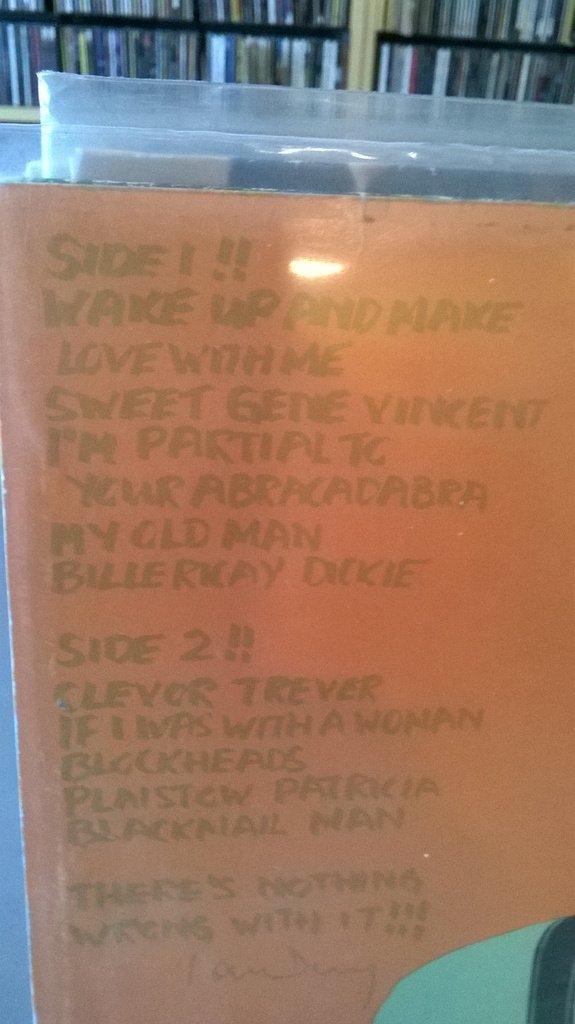 SIDE 1 !!
WAKE UP AND MAKE
LOVE WITH ME
SWEET GENE VINCENT
I'M PARTIAL TO
YOUR ABRACADABRA
MY OLD MAN
BILLERICAY DICKIE
SIDE 2 !!
CLEVOR TREVER
IF I WAS WITH A WOMAN
BLOCKHEADS
PLAISTOW PATRICIA
BLACKMAIL MAN
THERE'S NOTHING
WRONG WITH IT!!!
Ian Dury